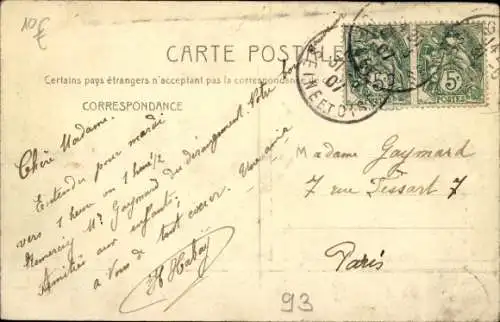 10
€
CARTE POSTALE
Certains pays étrangers n'acceptant pas la correspondance de
CORRESPONDANCE
Chère Madame.
Entendu pour mardi
vers 1 heure ou 1 heure 1/2
Remerciez Mr Gaymard du dérangement. Votre
Amitiés aux enfants,
à vous de tout coeur. Une amie
H Habay
Madame Gaymard
7 rue Tessart 7
Paris
93
SEINE ET OISE
07
5c
POSTES
5c